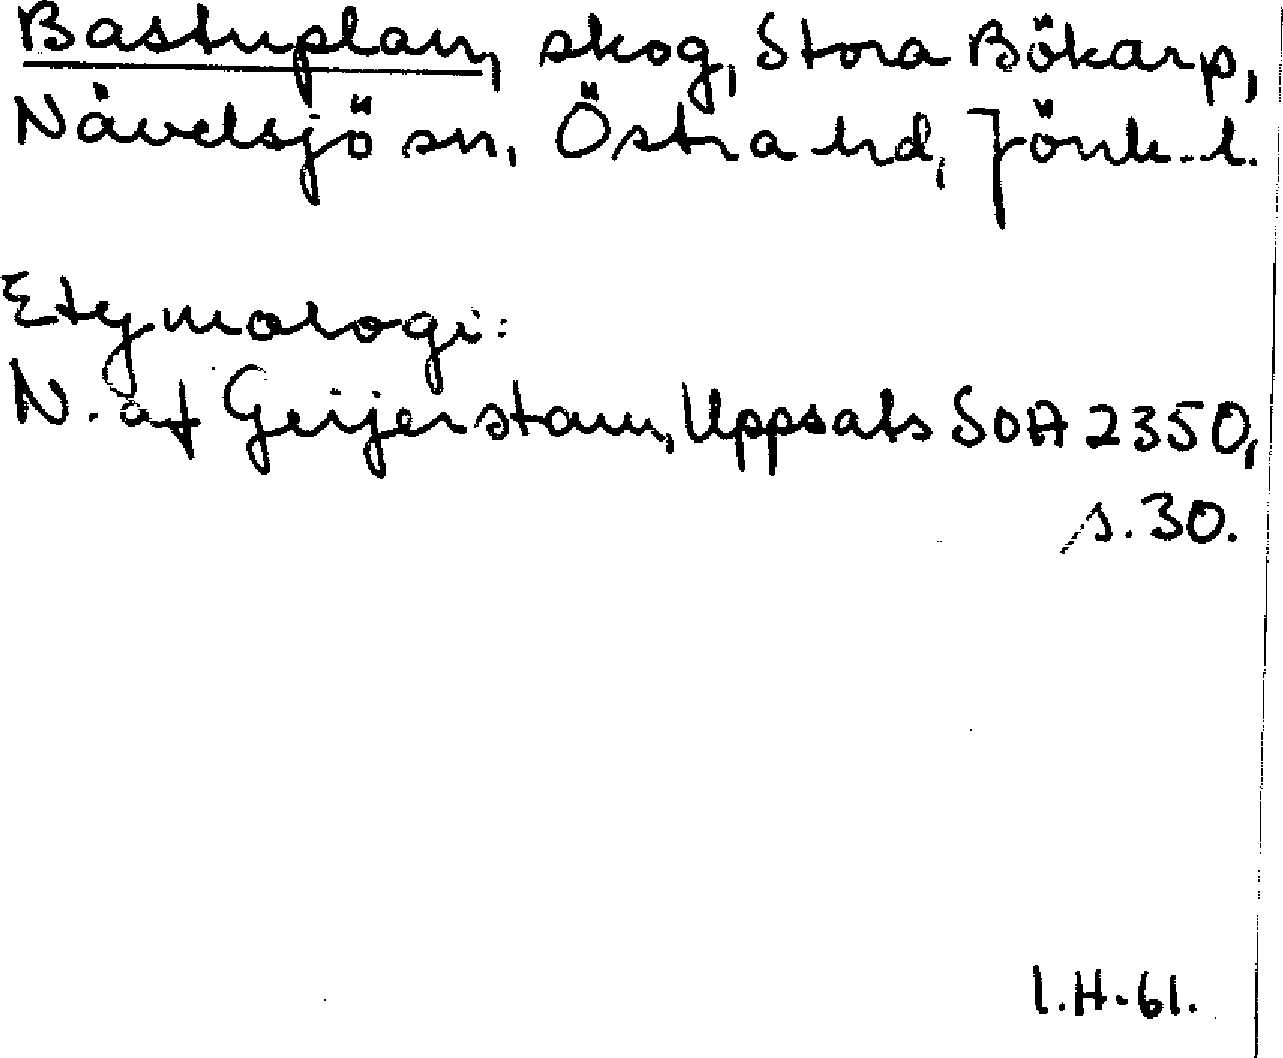 Bastuplan, skog, Stora Bökarp,
Nävelsjö sn, Östra hd, Jönk. l.
Etymologi:
N. af Geijerstam, Uppsats SOA 2350,
s. 30.
I.H. 61.